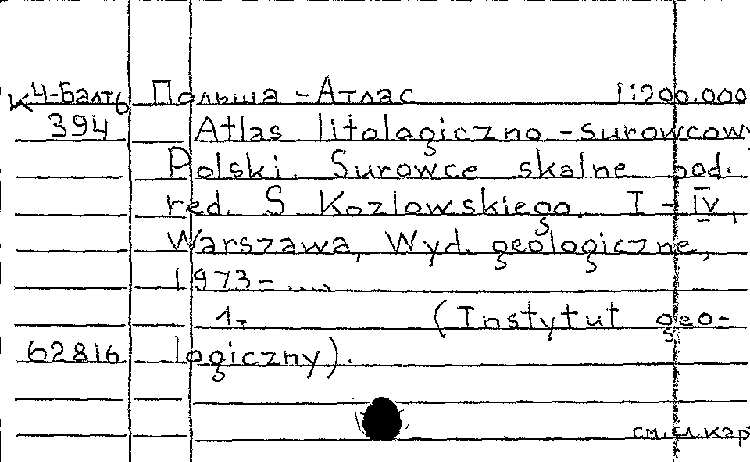 К4-Балт Польша - Атлас 1:200.000
394 Atlas litologiczno-surowcowy
Polski. Surowce skalne pod.
red. S Kozlowskiego. I - IV,
Warszawa, Wyd. geologiczne,
1973-....
1. (Instytut geo-
62816 logiczny).
см. кар